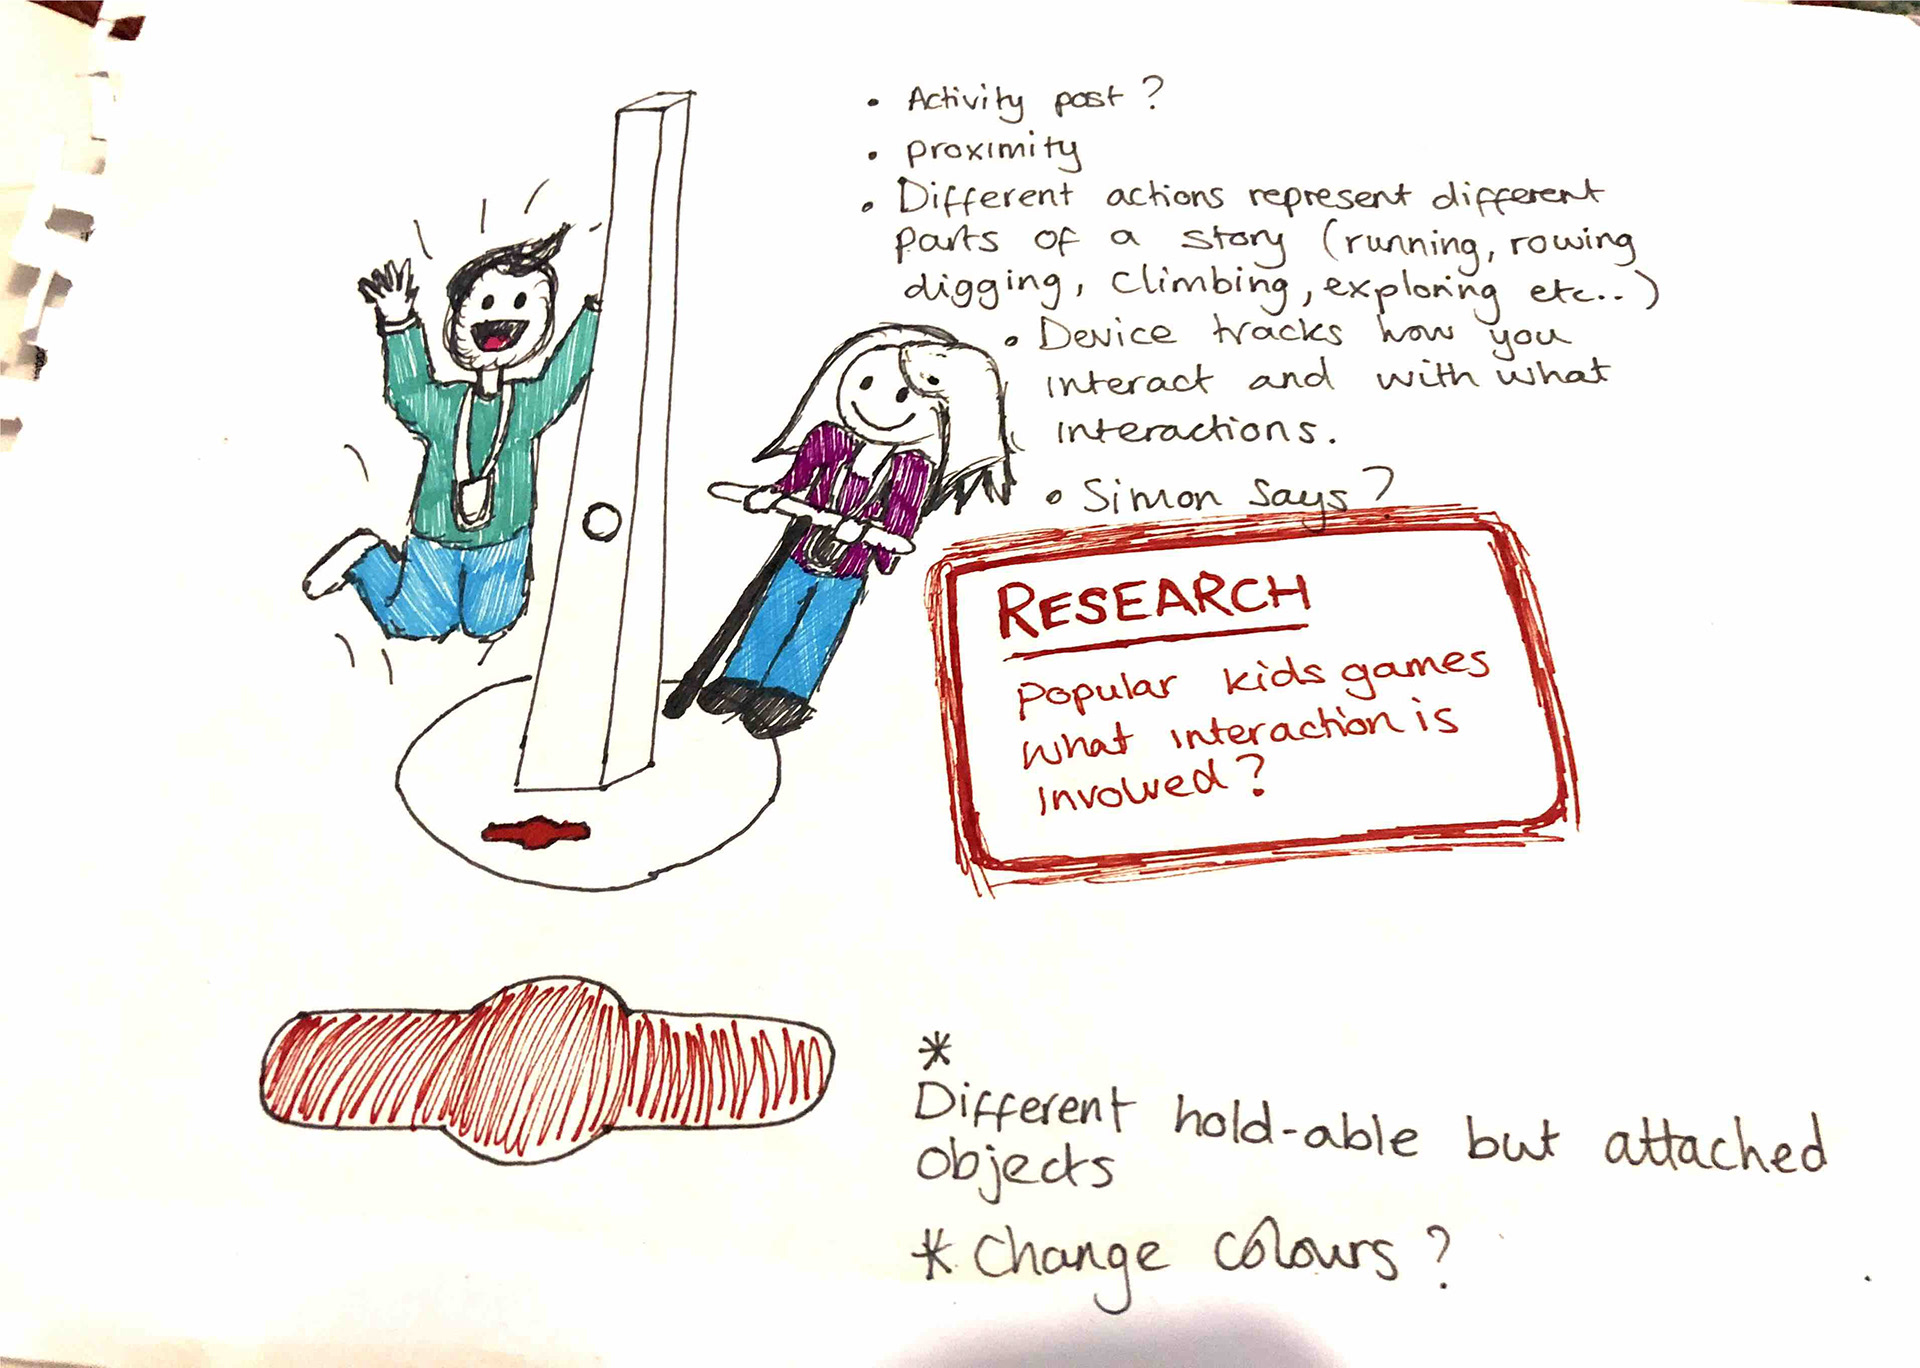 • Activity post ?
• proximity
• Different actions represent different
parts of a story (running, rowing
digging, climbing, exploring etc..)
• Device tracks how you
interact and with what
interactions.
• Simon Says ?
RESEARCH
Popular kids games
what interaction is
involved ?
*
Different hold-able but attached
objects
* Change colours ?